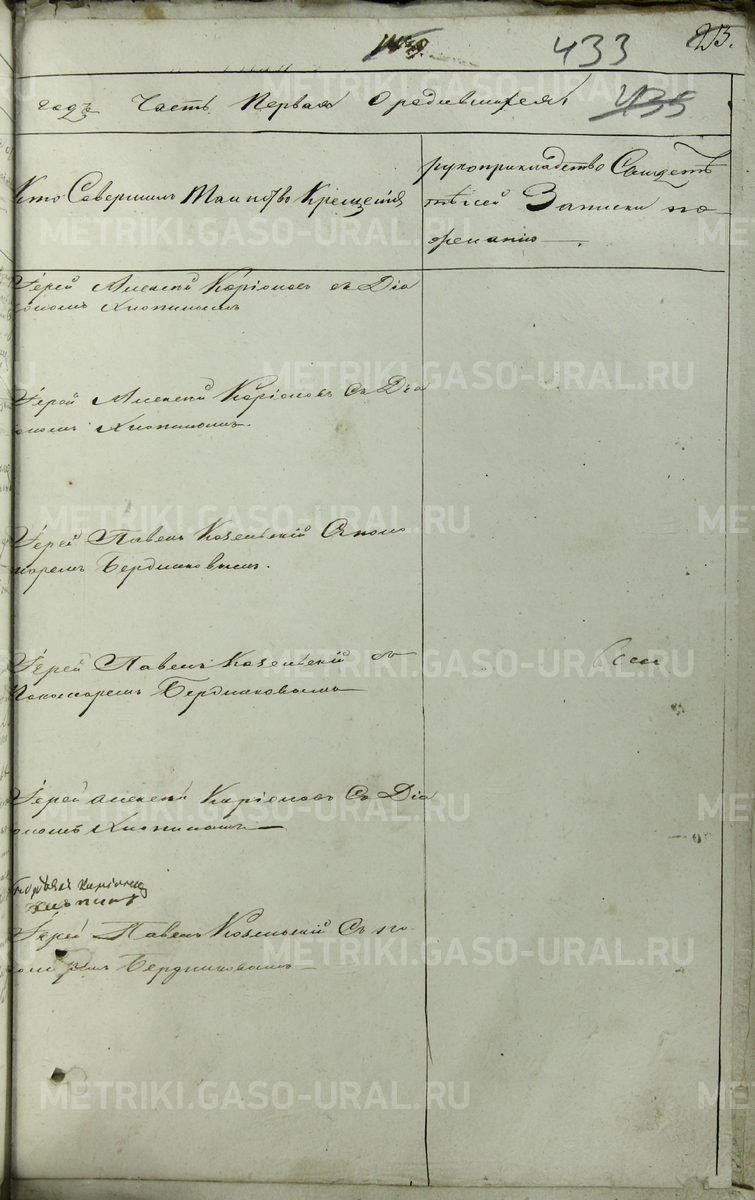 433 
435
годъ Часть Первая о родившихся
Кто Совершилъ Таинство Крещенія
рукоприкладство Свидѣтѣ
тѣлей Записки по
желанію
Іерей Алексей Каріоновъ съ Діа
кономъ Хлопинымъ
Іерей Алексей Каріоновъ Съ Діа
кономъ Хлопинымъ.
Іерей Павелъ Козельскій С поно
маремъ Бердниковымъ.
Іерей Павелъ Козельскій съ
Пономаремъ Бердниковымъ
Іерей Алексей Каріоновъ Съ Діа
кономъ Хлопинымъ
Іерей Павелъ Козельскій Съ по
Бердниковымъ
METRIKI.GASO-URAL.RU